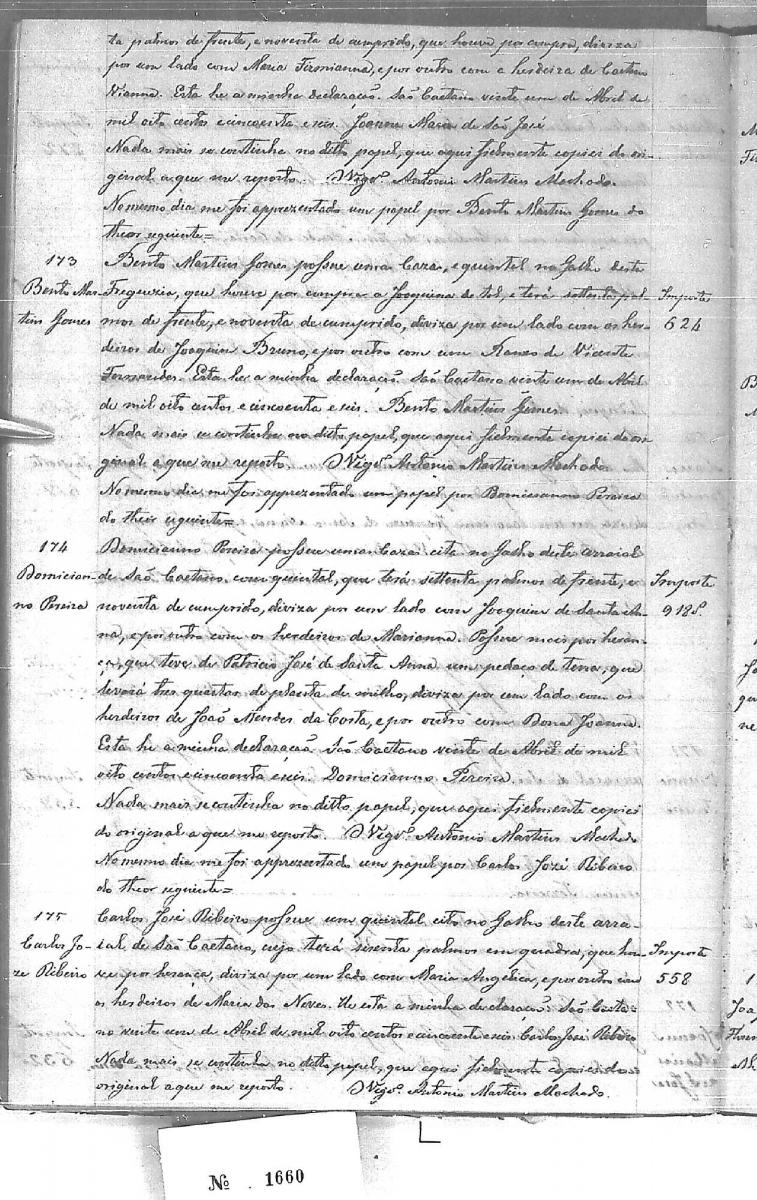 ta palmos de frente, e noventa de cumprido, que houve por compra, diviza
por um lado com Maria Firmianna, e por outro com a herdeira de Caetano
Vianna. Esta he a minha declaração. São Caetano vinte um de Abril de
mil oito centos e cincoenta e seis. Joanna Maria de São José
Nada mais se continha no ditto papel, que aqui fielmente copiei do ori-
ginal a que me reporto. O Vigrº. Antonio Martins Machado.
No mesmo dia me foi apprezentado um papel por Bento Martins Gomes do
theor seguinte=
173
Bento Mar-
tins Gomes
Bento Martins Gomes, possue uma Caza, e quintal no Galho desta
Freguezia, que houve por compra a Joaquina de tal, e terá settenta pal-
mos de frente, e noventa de cumprido, diviza por um lado com os her-
deiros de Joaquim Bruno, e por outro com um Ramos de Vicente
Fernandes. Esta he a minha declaração. São Caetano vinte um de Abril
de mil oito centos e cincoenta e seis. Bento Martins Gomes
Nada mais se continha no ditto papel, que aqui fielmente copiei do ori-
ginal a que me reporto. O Vigrº. Antonio Martins Machado
No mesmo dia me foi apprezentado um papel por Domicianno Pereira
do theor seguinte=
Importe
624
174
Domician-
no Pereira
Domicianno Pereira possue uma Caza cita no Galho deste arraial
de São Caetano com quintal, que terá settenta palmos de frente, e
noventa de cumprido, diviza por um lado com Joaquim de Santa An-
na, e por outro com os herdeiros de Marianna. Possue mais por heran-
ça, que teve de Patricio José de Santa Anna um pedaço de terra, que
levará tres quartas de planta de milho, diviza por um lado com os
herdeiros de João Mendes da Costa, e por outro com Dona Joanna.
Esta he a minha declaração. São Caetano vinte de Abril de mil
oito centos e cincoenta e seis. Domicianno Pereira.
Nada mais se continha no ditto papel, que aqui fielmente copiei
do original a que me reporto. O Vigrº. Antonio Martins Machado
No mesmo dia me foi apprezentado um papel por Carlos José Ribeiro
do theor seguinte=
Importe
918
175
Carlos Jo-
ze Ribeiro
Carlos José Ribeiro possue um quintal cito no Galho deste arra-
ial de São Caetano, cujo terá secenta palmos em quadra, que hou-
ve por herança, diviza por um lado com Maria Angelica, e por outro com
os herdeiros de Maria das Neves. He esta a minha declaração. São Caeta-
no vinte um de Abril de mil oito centos e cincoenta e seis. Carlos José Ribeiro
Nada mais se continha no ditto papel, que aqui fielmente copiei do
original a que me reporto. O Vigrº. Antonio Martins Machado.
Importe
558
Nº 1660